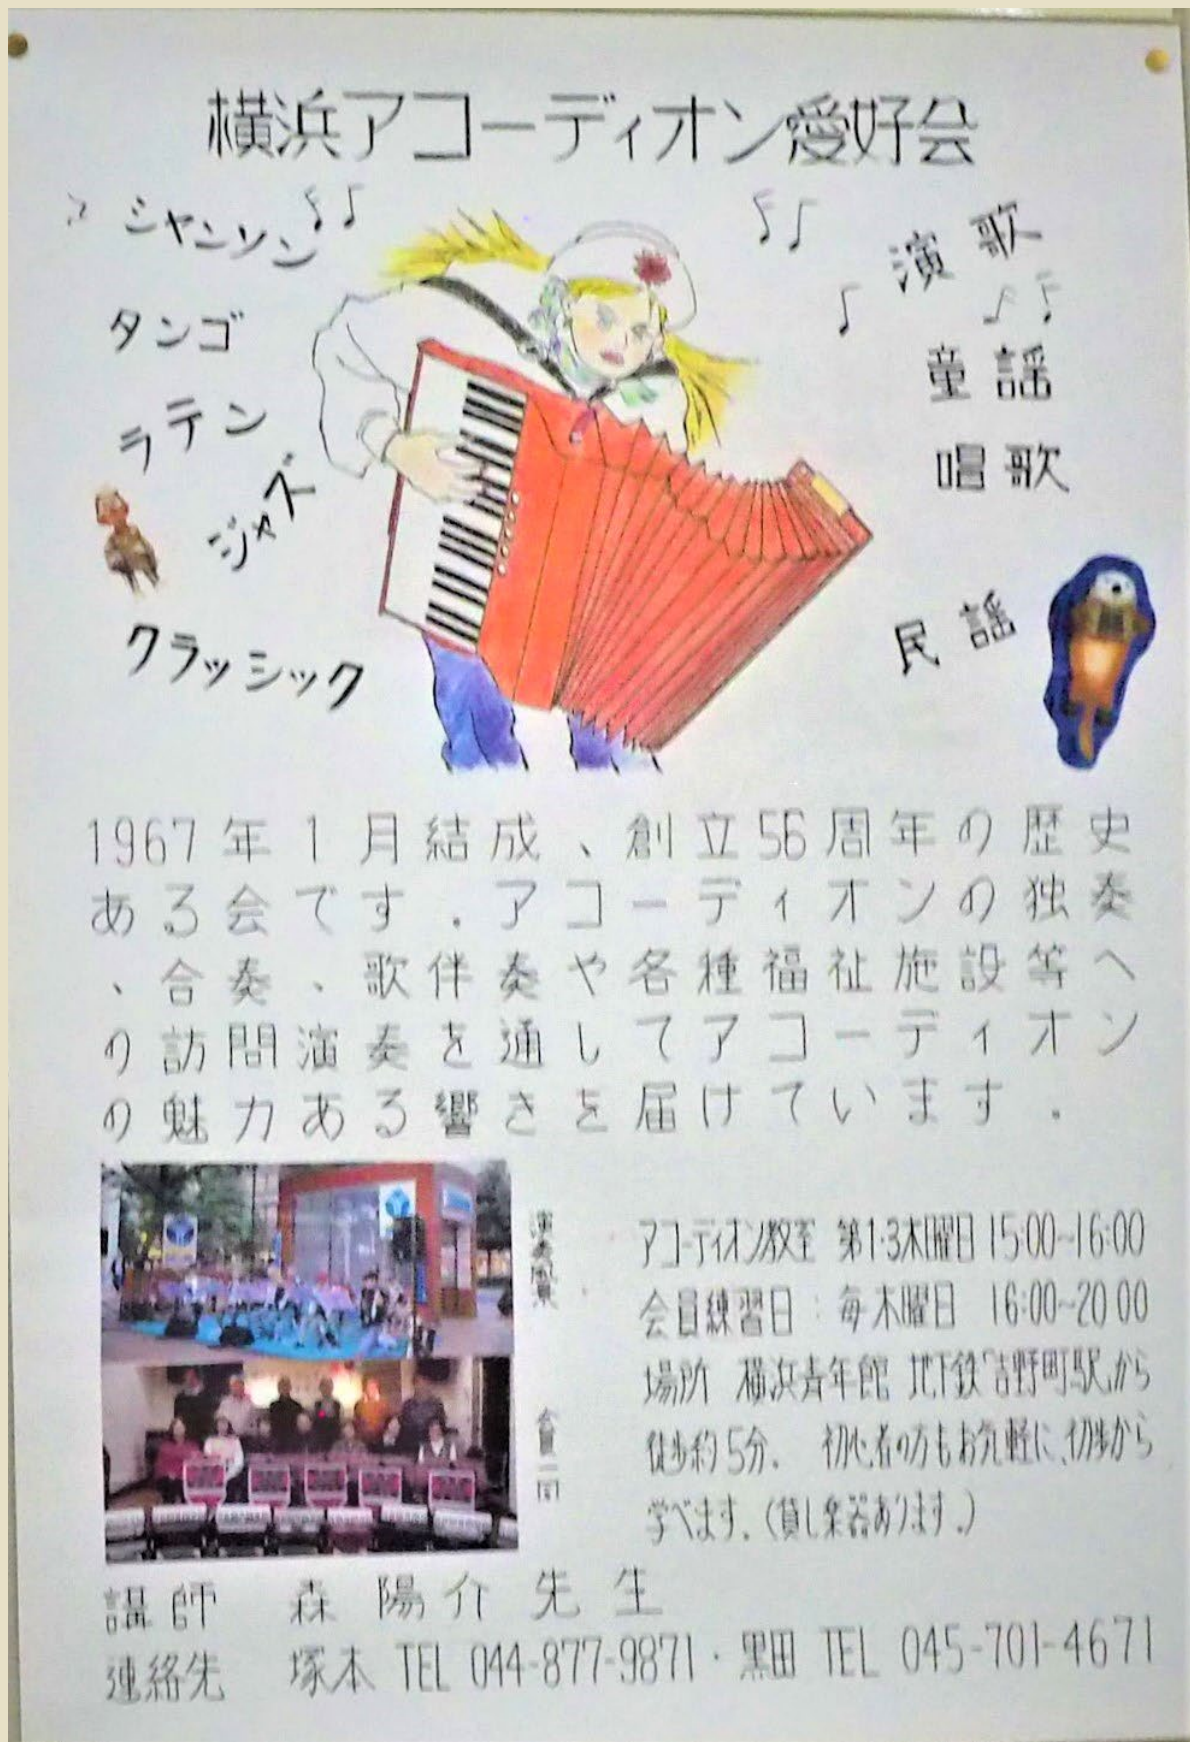 横浜アコーディオン愛好会
シャンソン
タンゴ
ラテン
ジャズ
クラッシック
演歌
童謡
唱歌
民謡
1967年1月結成、創立56周年の歴史
ある会です．アコーディオンの独奏
、合奏、歌伴奏や各種福祉施設等へ
の訪問演奏を通してアコーディオン
の魅力ある響きを届けています．
演奏風景
会員一同
アコーディオン教室 第1·3木曜日 15:00~16:00
会員練習日：毎木曜日 16:00~20:00
場所 横浜青年館 地下鉄「吉野町駅」から
徒歩約5分． 初心者の方もお気軽に、初歩から
学べます．(貸し楽器あります．)
講師 森陽介先生
連絡先 塚本 TEL 044-877-9871・黒田 TEL 045-701-4671